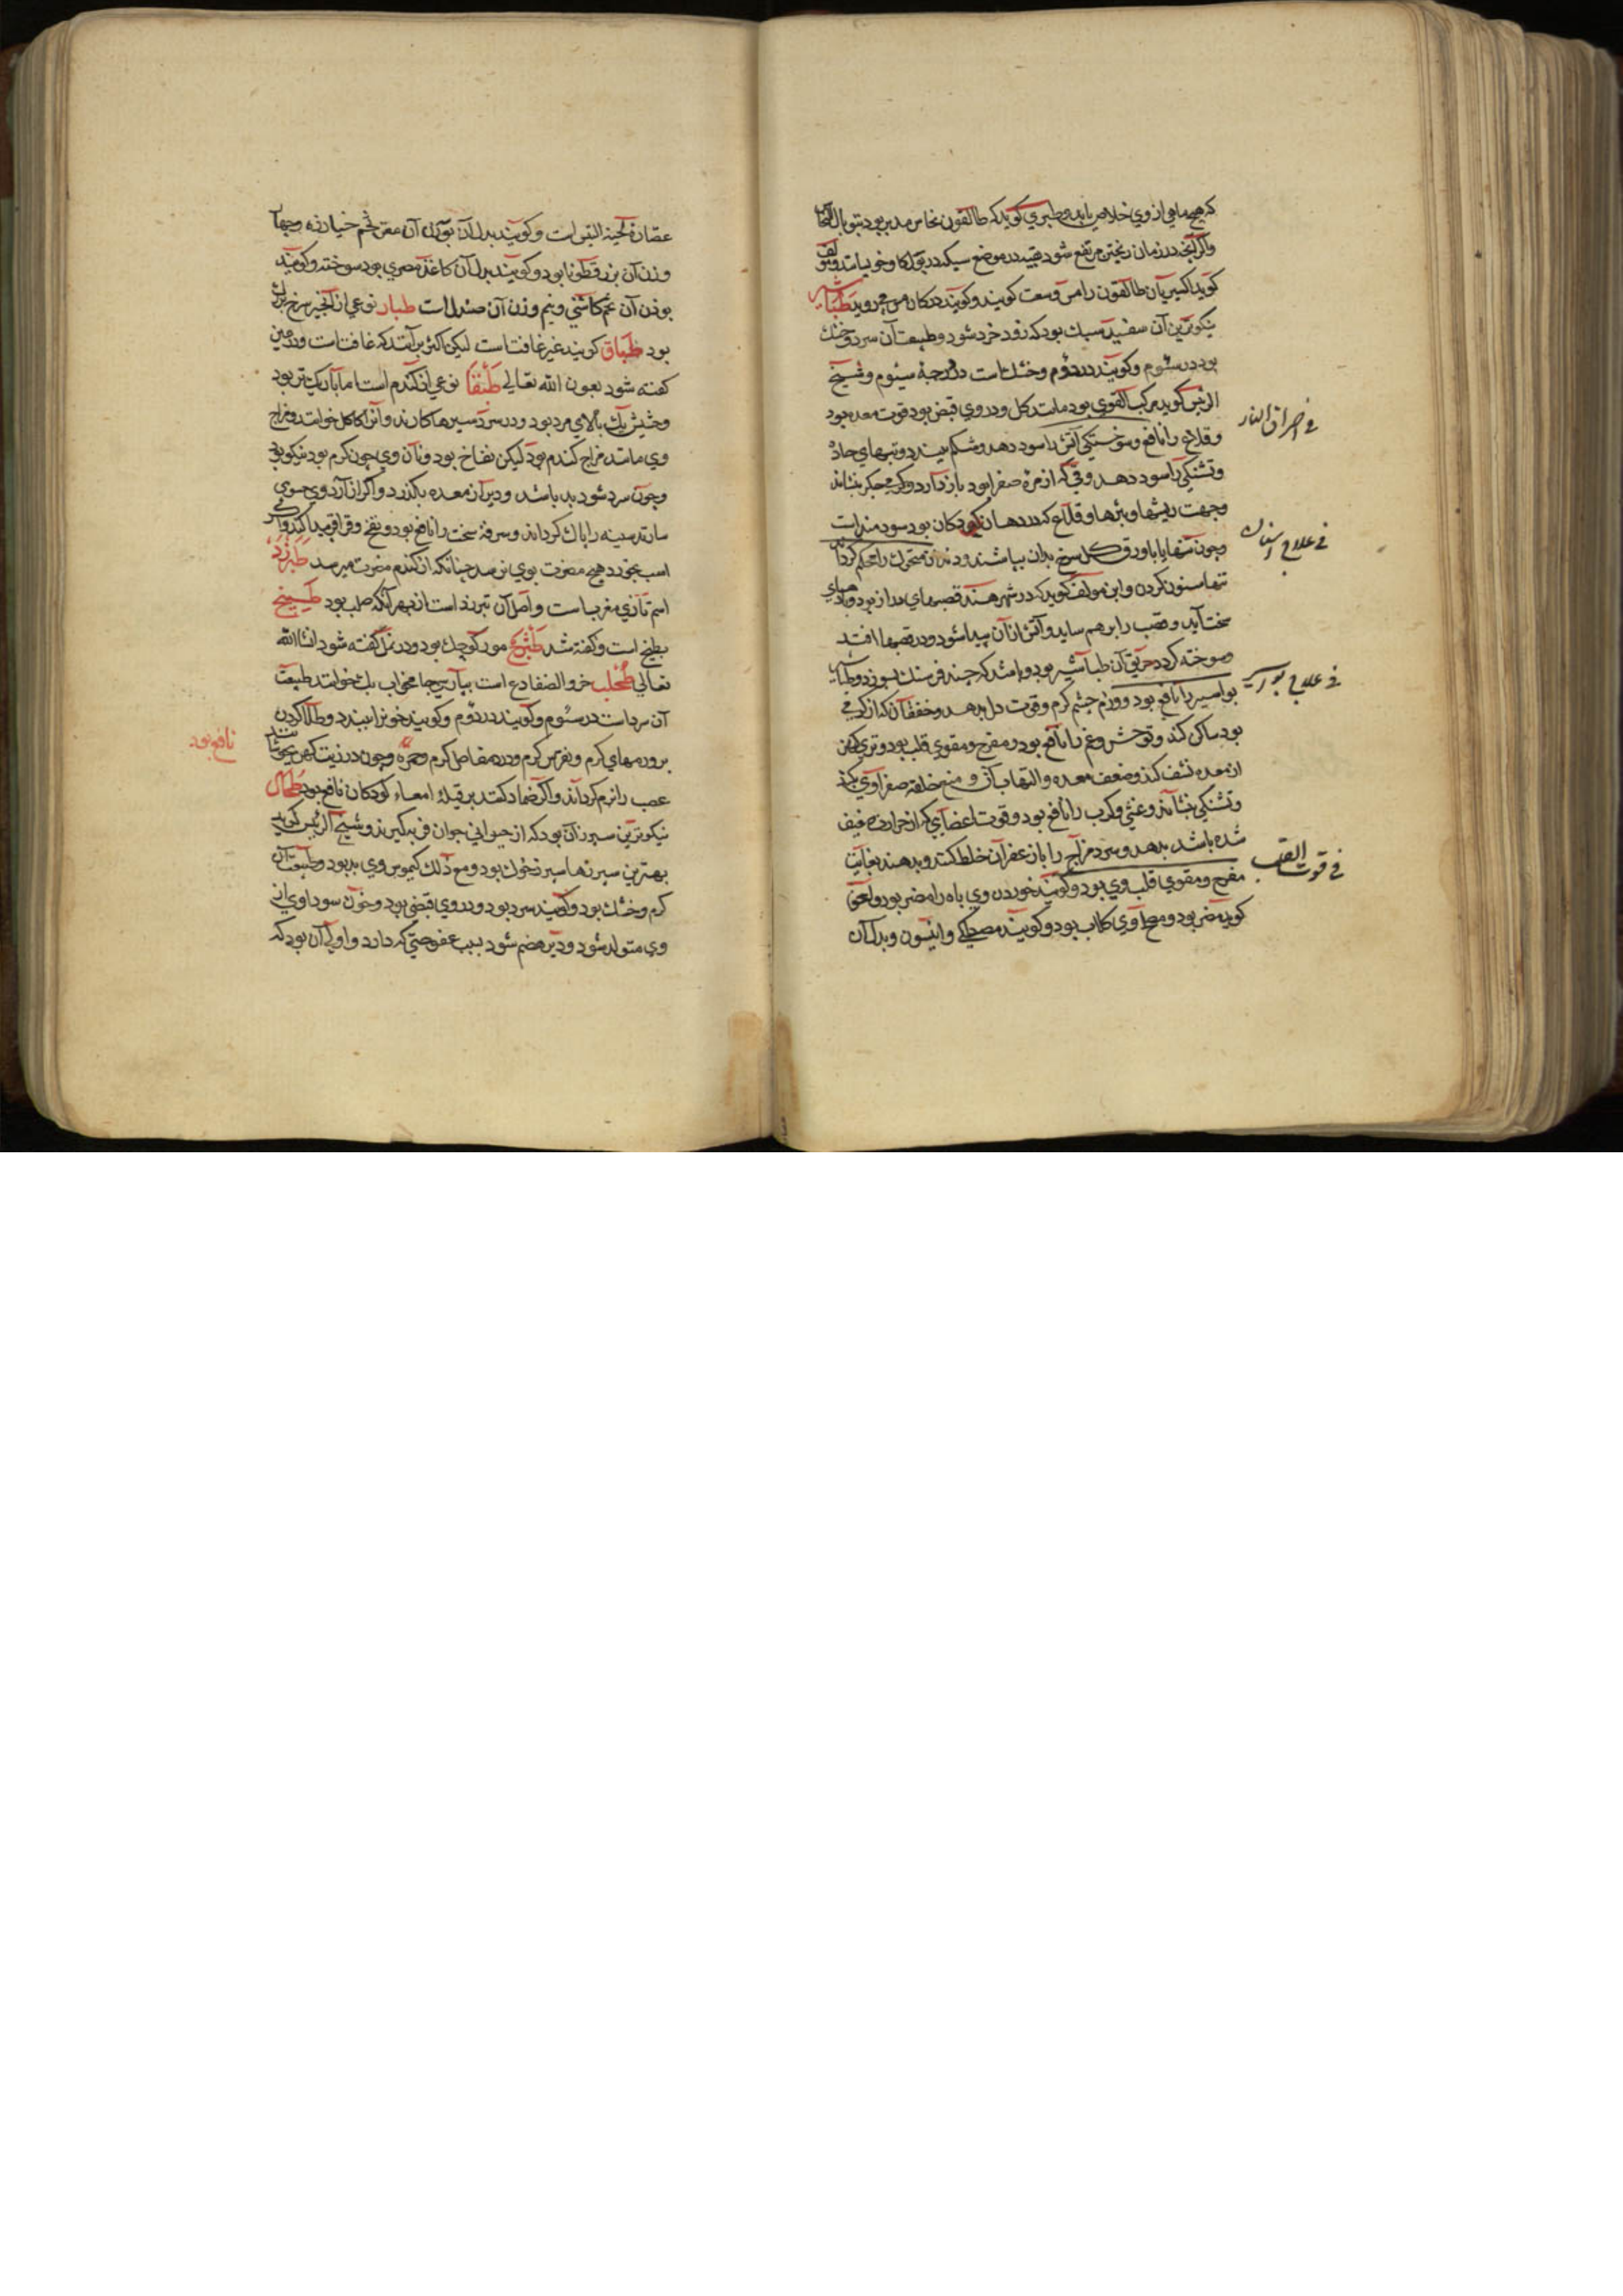 که هیچ ماهی از وی خلاص نیابد و طبری کوید که طالقون نحاس مدبر بود بتوبال النحاس
کوید اکسیریان طالقون را مس
طباشیر
نیکوترین آن سفید سبک بود که زود خرد شود و طبیعت آن سرد و خشک
بود در سئوم و کویند در دوم و خشک است در درجهٔ سیئوم و شیخ
الرئیس کوید مرکب القوی بود مانند کل و در وی قبض بود قوت معده بود
و قلاع را نافع و سوختکی آتش را سود دهد و شکم ببندد و تبهای حاد
و تشنکی را سود دهد و قی که از مرهٔ صفرا بود باز دارد و کرمی جکر بنشاند
و جهت ریشها و بثرها و قلاع که در دهان کودکان بود سودمند است
تنها سنون کردن و ابن مولف کوید که در شهر هند قصبهای دراز بود و بادهای
سخت آید و قصب را بر هم ساید و آتش از آن پیدا شود و در قصبها افتد
و سوخته کردد حریق آن طباشیر بود و باشد که چند فرسنک بسوزد و طباشیر
بواسیر را نافع بود و ورم چشم کرم و قوت دل بدهد و خفقان که از کرمی
بود ساکن کند و توحش و غم را نافع بود و مفرح و مقوی قلب بود و تری کهن
از معده نشف کند و ضعف معده و التهاب آن و منع خلفه صفراوی بکند
و تشنکی بنشاند و غشی و کرب را نافع بود و قوت اعضای که از حرارت ضعیف
شده باشد بدهد و سرد مزاج را با زعفران خلط کنند و بدهند بغایت
مفرح و مقوی قلب وی بود و کویند خوردن وی باه را مضر بود و لعق
کوید مضر بود و مصلح وی کلاب بود و کویند مصطکی و انیسون و بدل آن
فی احراق النار
فی علاج اسنان
فی علاج بواسیر
فی قوت القلب
عصارهٔ لحیة التیس است و کویند بدل آن بوزن آن مغز تخم خیارزه و چهار
وزن آن بزرقطونا بود و کویند بدل آن کاغذ مصری بود سوخته و کویند
بوزن آن تخم کاسنی و نیم وزن آن صندل است طبار نوعی از انجیر سرخ بزرک
بود طباق کویند غیر غافت است لیکن اکثر برآنند که غافت است و در غین
کفته شود بعون الله تعالی طبقا نوعی از کندم است اما باریک‌تر بود
و خشیش یک بالای مرد بود و در سردسیرها کارند و آنرا کاکل خوانند و مزاج
وی مانند مزاج کندم بود لیکن نفاخ بود و نان وی چون کرم بود نیکو بود
و چون سرد شود بد باشد و دیر از معده بکذرد و اکر از آرد وی حسوی
سازند سینه را پاک کرداند و سرفهٔ سخت را نافع بود و نفخ و قراقر پیدا کند و اکر
اسب بخورد هیچ مضرت بوی نرسد چنانکه از کندم مضرت میرسد طبرزد
اسم تازی معرب است و اصل آن تبرزد است از بهر آنکه صلب بود طبیخ
بطیخ است و کفته شد طثرج مور کوچک بود و در نمل کفته شود انشاالله
تعالی طحلب خرو الضفادع است بپارسی جامه خواب بک خوانند طبیعت
آن سرد است در سئوم و کویند در دوم و کویند خون را ببندد و طلا کردن
بر ورمهای کرم و نقرس کرم و در مفاصل کرم و حمره و چون در زیت کهن بجوشانند
عصب را نرم کرداند و اکر ضماد کنند بر قیلهٔ امعاء کودکان نافع بود طحال
نیکوترین سپرز آن بود که از حیوانی جوان فربه کیرند و شیخ الرئیس کوید
بهترین سپرزها سپرز خوک بود و مع ذلک کیموس وی بد بود و طبیعت آن
کرم و خشک بود و کویند سرد بود و در وی قبضی بود و خون سوداوی از
وی متولد شود و دیر هضم شود بسبب عفوصتی که دارد و اولی آن بود که
نافع بود